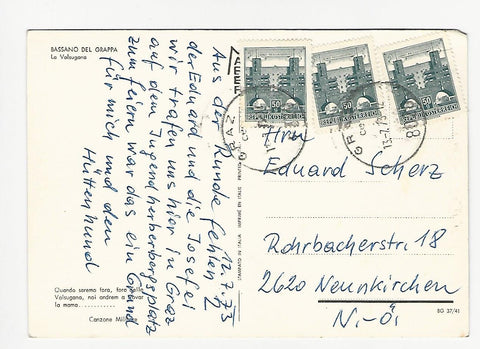 BASSANO DEL GRAPPA
La Valsugana
12.7.73
Aus der Runde fehlen 2
der Eduard und die Josefei
wir trafen uns hier in Graz
auf dem Jugendherbergsplatz
zum feiern war das ein Grund
für mich und den
Hüttenhund
Quando saremo fora, fora della
Valsugana, noi andrem a trovar
la mama
Canzone
STAMPATO IN ITALY
PRINTED
50
REPUBLIK ÖSTERREICH
50
REPUBLIK ÖSTERREICH
50
REPUBLIK ÖSTERREICH
GRAZ
GRAZ
13.-7.73
Hrn
Eduard Scherz
Rohrbacherstr. 18
2620 Neunkirchen
N.-Ö.
BG 37/41